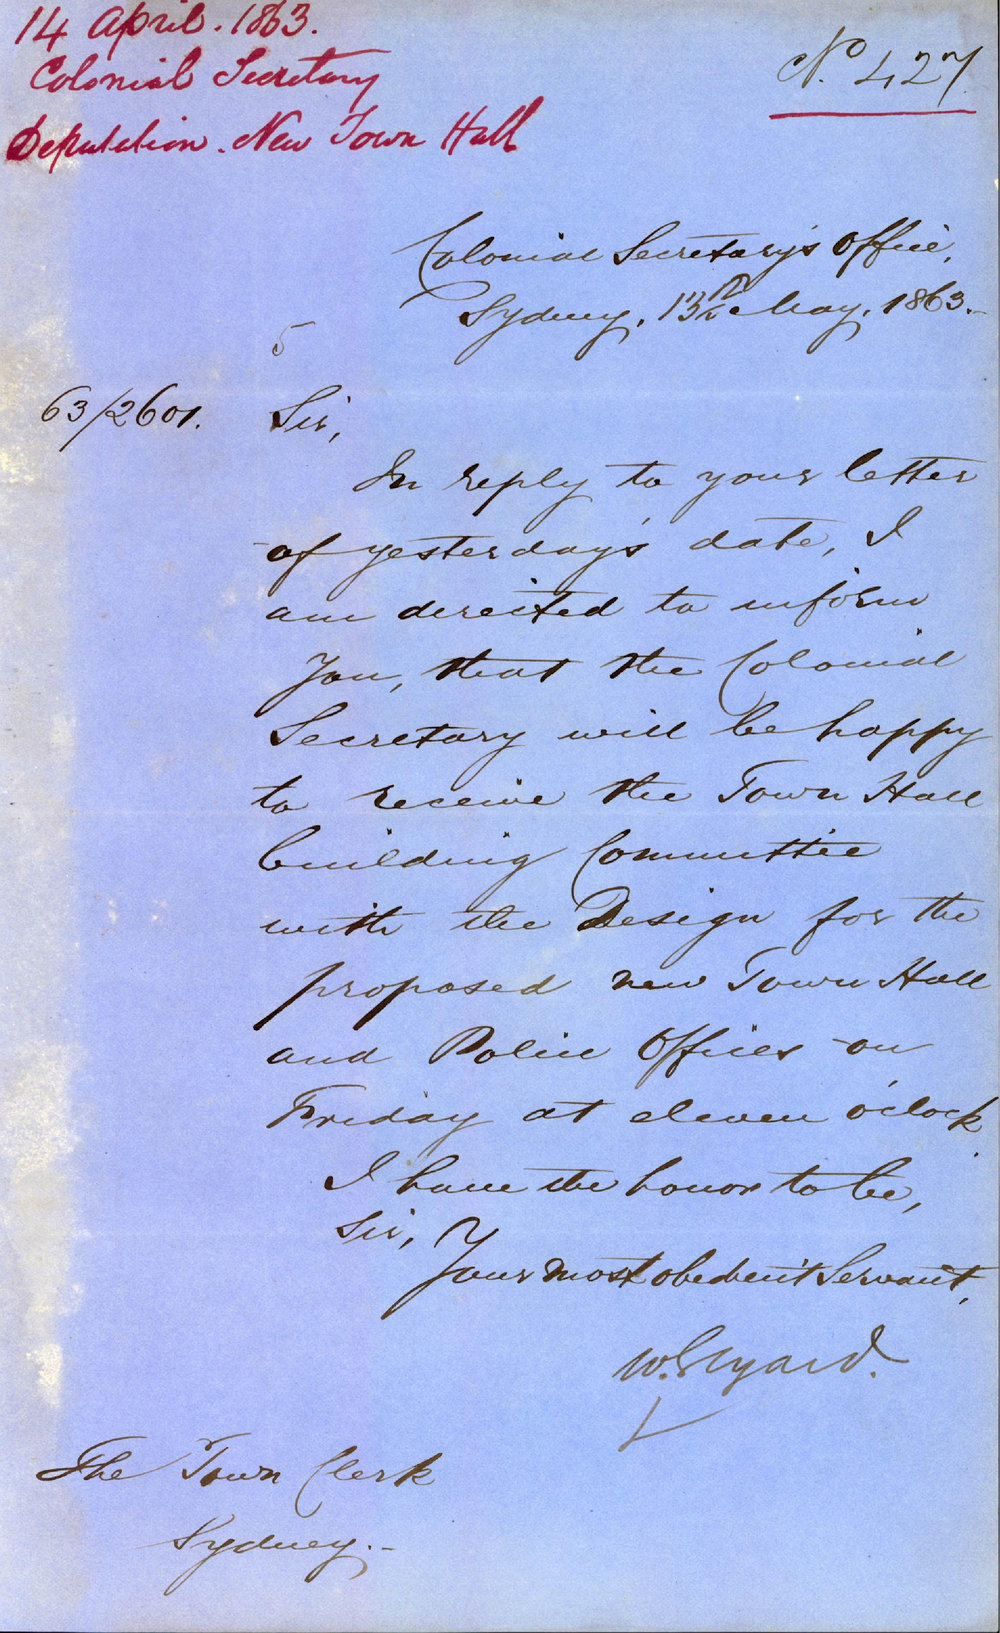 14 April. 1863.
Colonial Secretary
Deputation. New Town Hall
No. 427
Colonial Secretary's Office,
Sydney, 13th May, 1863.
5
63/2601.
Sir,
In reply to your letter
of yesterday's date, I
am directed to inform
You, that the Colonial
Secretary will be happy
to receive the Town Hall
building Committee
with the Design for the
proposed new Town Hall
and Police Offices on
Friday at eleven o'clock
I have the honor to be,
Sir,
Your most obedient Servant,
W. Elyard.
The Town Clerk
Sydney.